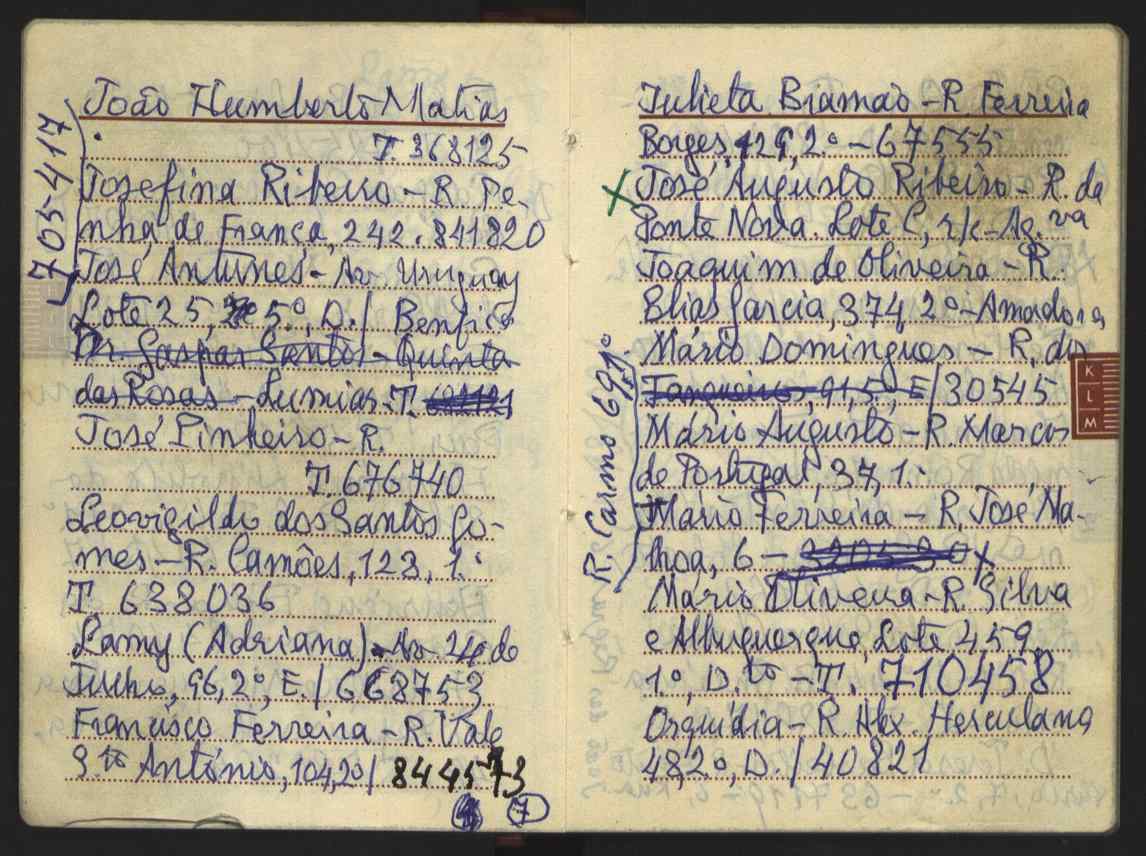 João Humberto Matias
T. 368125
705417
Josefina Ribeiro - R. Pe-
nha de França, 242. 841820
José Antunes - Av. Uruguay
Lote 25, 5.º, D. / Benfica
Dr. Gaspar Santos - Quinta
das Rosas - Lumiar. T.
José Pinheiro - R.
T. 676740
Leovigildo dos Santos Go-
mes - R. Camões, 123, 1.º
T. 638036
Lamy (Adriana) - Av. 24 de
Julho, 96, 2.º, E. / 668753
Francisco Ferreira - R. Vale
S.to António, 104, 2º / 844573
7
Julieta Biamão - R. Ferreira
Borges, 129, 2.º - 67555
X José Augusto Ribeiro - R. da
Ponte Nova. Lote C, r/c - Ag.va
Joaquim de Oliveira - R.
Elias Garcia, 374, 2º - Amadora
Mário Domingues - R. das
91, 5.º, E / 30545
R. Carmo, 69, 1º
Mário Augusto - R. Marcos
de Portugal, 37, 1.º
Mário Ferreira - R. José Ma-
lhoa, 6 - X
Mário Oliveira - R. Silva
e Albuquerque, Lote 459,
1.º, D.to - T. 710458
Orquídia - R. Alex. Herculano
48 2º, D. / 40821
K
L
M